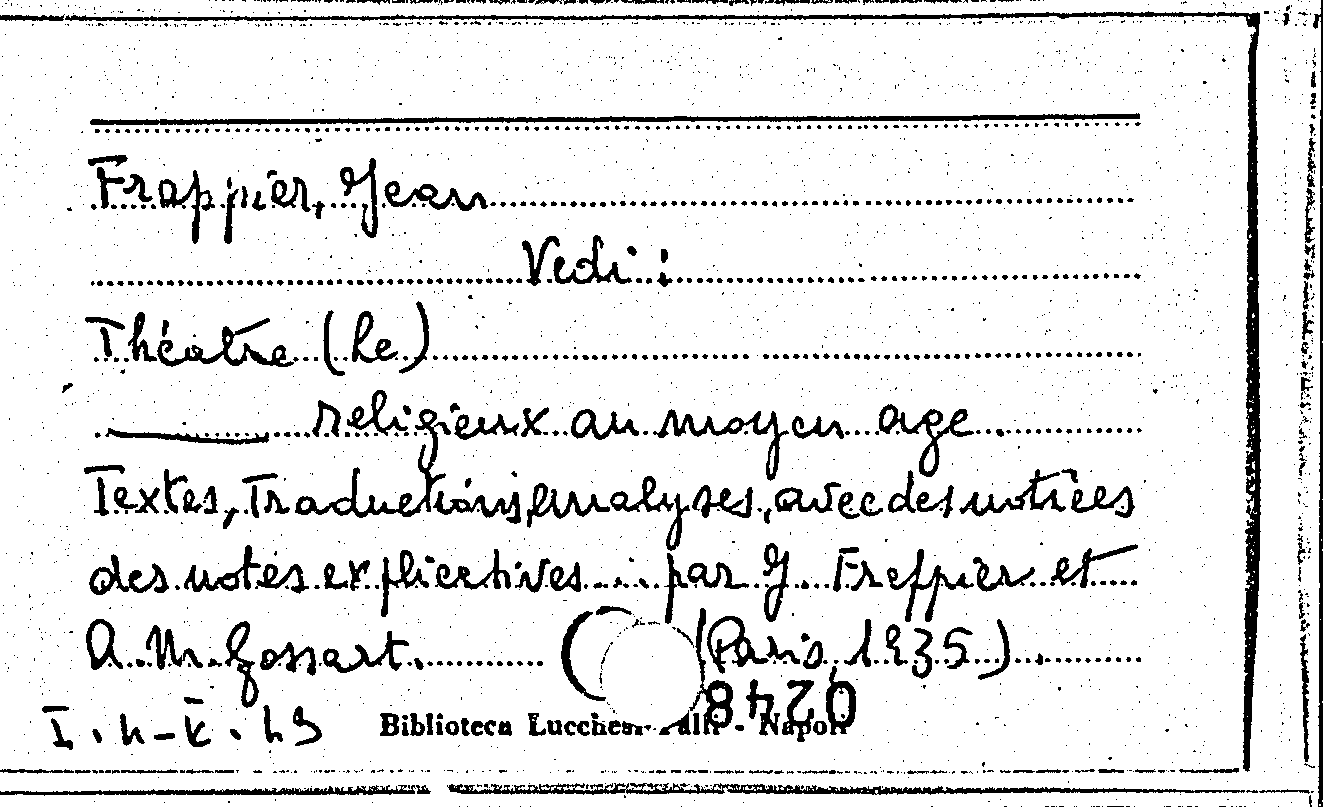 Frappier, Jean
Vedi :
Théatre (Le)
religieux au moyen age.
Textes, Traductions, analyses, avec des notices
des notes explicatives... par J. Frappier et
A. M. Gossart. (Paris, 1935).
Biblioteca Lucchesi-Palli - Napoli
0248